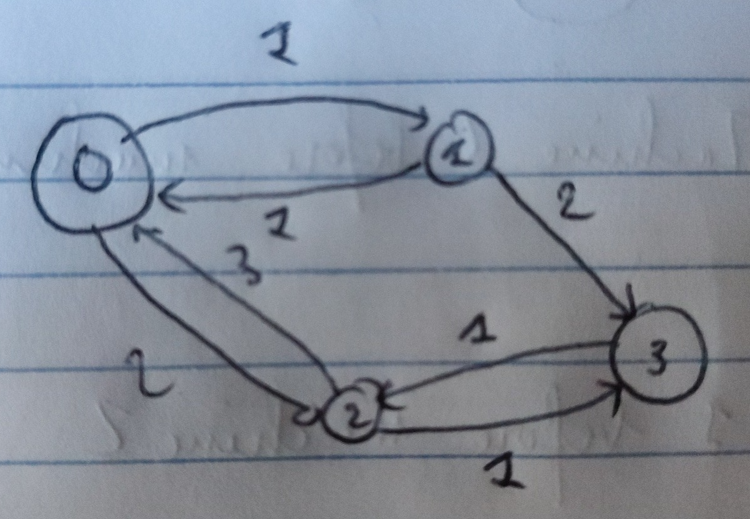 1
0
1
1
2
3
2
1
3
2
1